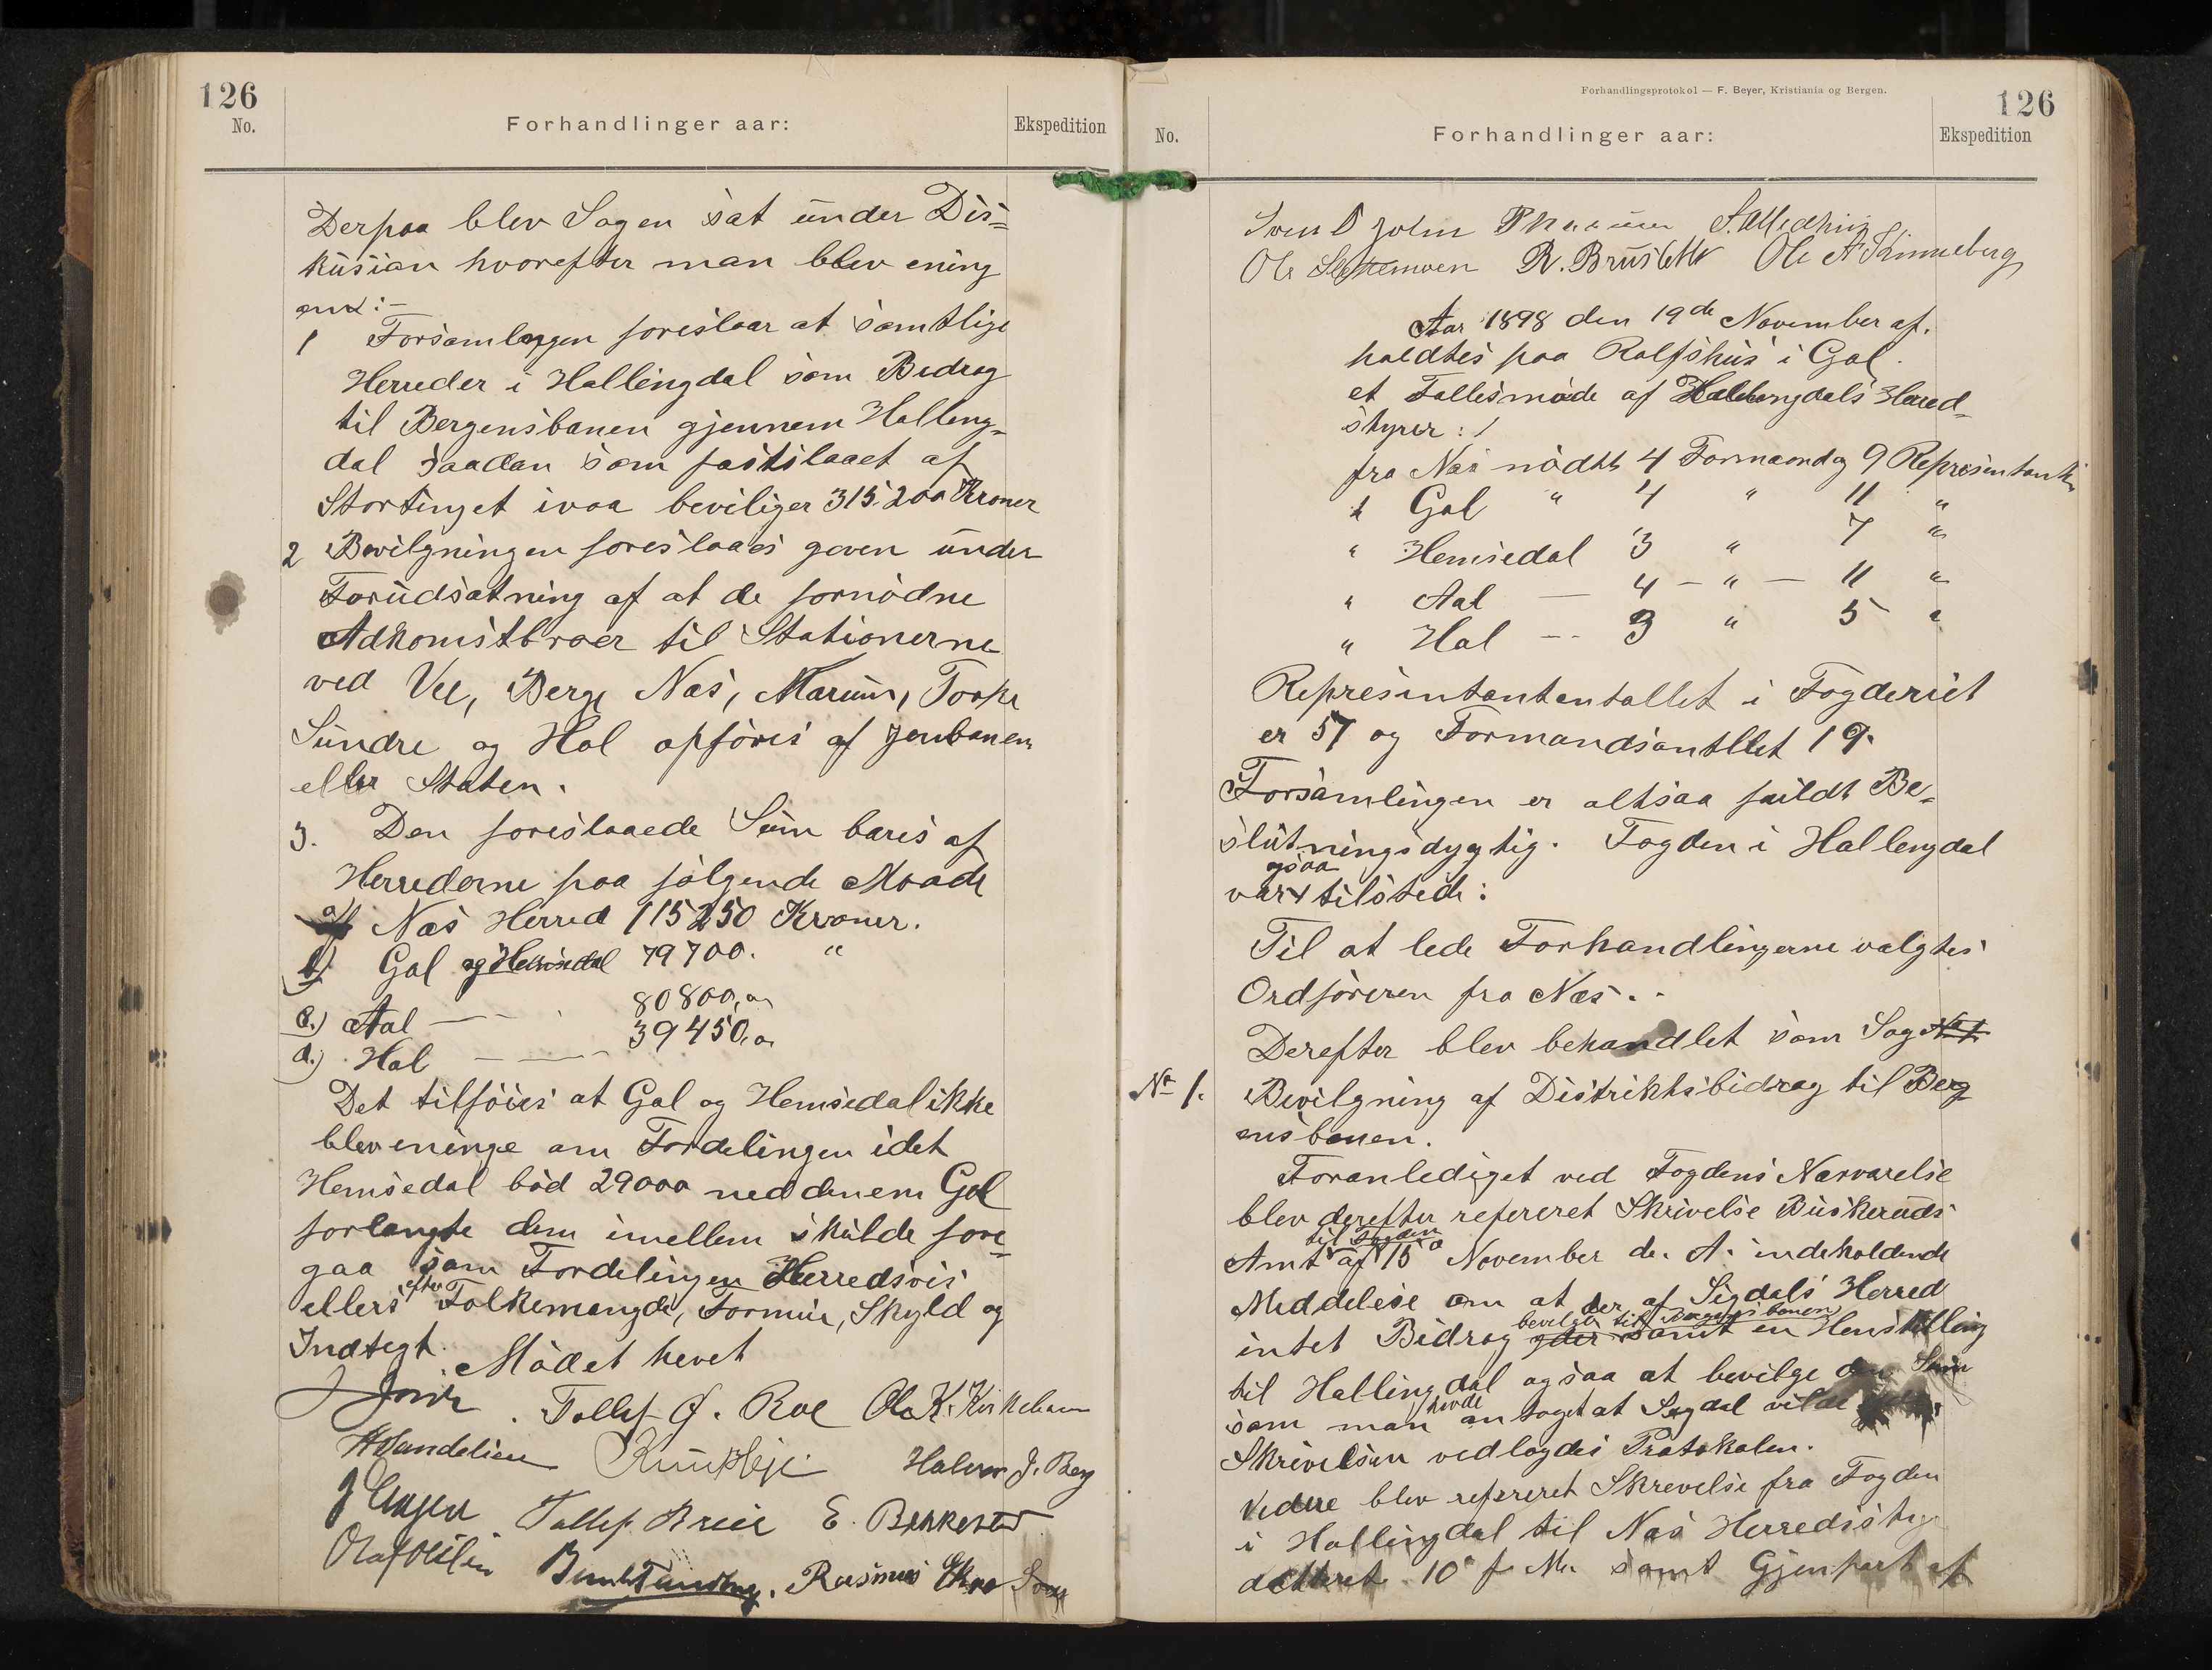 126
No.
Forhandlinger aar:
Ekspedition
Derpaa blev Sagen sat under Dis=
kusian hvorefter man blev ening
om:-
1 Forsamlingen foreslaar at samtlige
Herreder i Hallingdal som Bidrag
til Bergensbanen gjennem Halling=
dal saadan som fastslaaet af
Stortinget ivaa beviliger 315.200 Kroner
2 Bevilgningen foreslaaes given under
Forudsætning af at de fornødne
Adkomstbroer til Stationerne
ved Vee, Berg, Næs, Marum, Torpe
Sundre og Hol opføres af Jernbanen
eller Staten.
3. Den foreslaaede Sum bæres af
Herrederne paa følgende Maade
a) Næs Herred 115250 Kroner.
b) Gol og Hemsedal 79700. "
c.) Aal — 80800,00
d.) Hol — 39450,00
Det tilføies at Gol og Hemsedal ikke
blev eninge om Fordelingen idet
Hemsedal bød 29000 medens Gol
forlangte dem imellem skulde fore=
gaa som Fordelingen Herredsvis
ellers efter Folkemængde, Formue, Skyld og
Indtegt.
Mødet hevet
Tollef G. Roe Ola K. Kirkebøen
Halvor J. Berg
Tollef E. Bakkerud
Rasmus
126
Forhandlingsprotokol — F. Beyer, Kristiania og Bergen.
No.
Forhandlinger aar:
Ekspedition
Sven
Ole Slettemoen R. Bruslett Ole A Finneberg
Aar 1898 den 19de November af.
holdtes paa Rolfshus i Gol.
et Fællesmøde af Hallingdals Hered=
styrer:/
fra Næs mødte 4 Formænd og 9 Representanter
" Gol " 4 " 11 "
" Hemsedal 3 " 7 "
" Aal — 4 — " — 11 "
" Hol -- 3 " 5 "
Representantantallet i Fogderiet
er 57 og Formandsantllet 19.
Forsamlingen er altsaa fuldt Be=
slutningsdygtig. Fogden i Hallingdal
var ogsaa tilstede:
Til at lede Forhandlingerne valgtes
Ordføreren fra Næs..
Derefter blev behandlet som Sag No 1
No 1. Bevilgning af Distriktsbidrag til Berg
ensbanen.
Foranlediget ved Fogdens Nærværelse
blev derefter refereret Skrivelse Buskeruds
Amt til Fogden af 15de November d. A. indeholdende
Meddelelse om at der af Sigdals Herred
intet Bidrag bevilges til Bergensbanen samt en Henstilling
til Hallingdal ogsaa at bevilge den Sum
som man havde antaget at Sigdal vilde
Skrivelsen vedlagdes Protokolen.
Videre blev refereret Skrevelse fra Fogden
i Hallingdal til Næs Herredssty
datteret 10de f. M. samt Gjenpart af